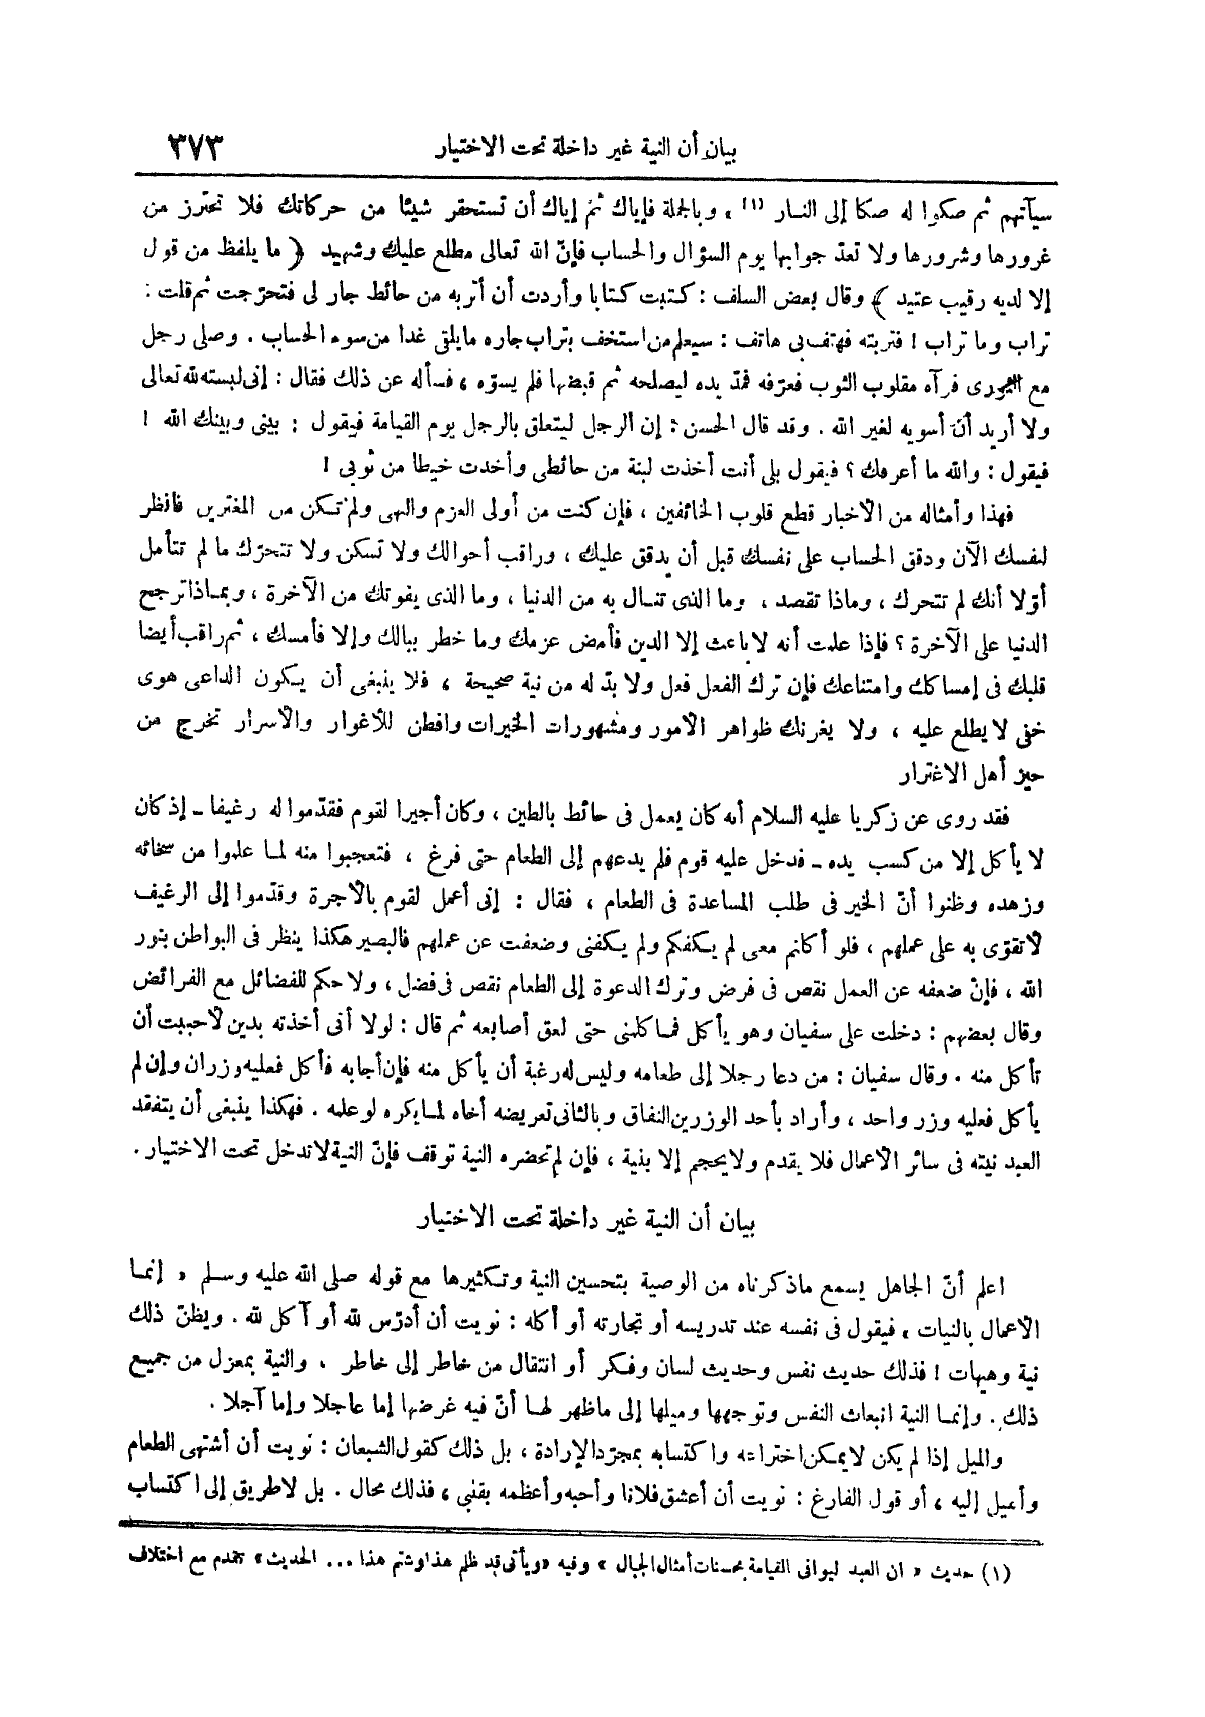 بيان أن النية غير داخلة تحت الاختيار ٣٧٣
سيآتهم ثم صكوا له صكا إلى النـار (١) » وبالجملة فإياك ثم إياك أن تستحقر شيئا من حركاتك فلا تحترز من
غرورها وشرورها ولا تعدّ جوابها يوم السؤال والحساب فإنّ الله تعالى مطلع عليك وشهيد ﴿ ما يلفظ من قول
إلا لديه رقيب عتيد ﴾ وقال بعض السلف : كتبت كتابا وأردت أن أتربه من حائط جار لى فتحرّجت ثم قلت :
تراب وما تراب ! فتربته فهتف بى هاتف : سيعلم من استخف بتراب جاره ما يلقى غدا من سوء الحساب . وصلى رجل
مع الثورى فرآه مقلوب الثوب فعرّفه فمدّ يده ليصلحه ثم قبضها فلم يسوّه ، فسأله عن ذلك فقال : إنى لبسته لله تعالى
ولا أريد أن أسويه لغير الله . وقد قال الحسن : إن الرجل ليتعلق بالرجل يوم القيامة فيقول : بينى وبينك الله !
فيقول : والله ما أعرفك ؟ فيقول بلى أنت أخذت لبنة من حائطى وأخذت خيطا من ثوبى !
فهذا وأمثاله من الأخبار قطع قلوب الخائفين ، فإن كنت من أولى العزم والنهى ولم تكن من المغترين فانظر
لنفسك الآن ودقق الحساب على نفسك قبل أن يدقق عليك ، وراقب أحوالك ولا تسكن ولا تتحرّك ما لم تتأمل
أوّلا أنك لم تتحرك ، وماذا تقصد ، وما الذى تنـال به من الدنيا ، وما الذى يفوتك من الآخرة ، وبمـاذا ترجح
الدنيا على الآخرة ؟ فإذا علمت أنه لا باعث إلا الدين فأمض عزمك وما خطر ببالك وإلا فأمسك ، ثم راقب أيضا
قلبك فى إمساكك وامتناعك فإن ترك الفعل فعل ولا بدّ له من نية صحيحة ، فلا ينبغى أن يكون الداعى هوى
خفى لا يطلع عليه ، ولا يغرنك ظواهر الأمور ومشهورات الخيرات وافطن للأغوار والأسرار تخرج من
حيز أهل الاغترار
فقد روى عن زكريا عليه السلام أنه كان يعمل فى حائط بالطين ، وكان أجيرا لقوم فقدّموا له رغيفا ـ إذ كان
لا يأكل إلا من كسب يده ـ فدخل عليه قوم فلم يدعهم إلى الطعام حتى فرغ ، فتعجبوا منه لمـا علموا من سخائه
وزهده وظنوا أنّ الخير فى طلب المساعدة فى الطعام ، فقال : إنى أعمل لقوم بالأجرة وقدّموا إلى الرغيف
لأتقوّى به على عملهم ، فلو أكلتم معى لم يكفكم ولم يكفنى وضعفت عن عملهم فالبصير هكذا ينظر فى البواطن بنور
الله ، فإنّ ضعفه عن العمل نقص فى فرض وترك الدعوة إلى الطعام نقص فى فضل ، ولا حكم للفضائل مع الفرائض
وقال بعضهم : دخلت على سفيان وهو يأكل فمـا كلمنى حتى لعق أصابعه ثم قال : لولا أنى أخذته بدين لأحببت أن
تأكل منه . وقال سفيان : من دعا رجلا إلى طعامه وليس له رغبة أن يأكل منه فإن أجابه فأكل فعليه وزران وإن لم
يأكل فعليه وزر واحد ، وأراد بأحد الوزرين النفاق وبالثانى تعريضه أخاه لمـا يكره لو علمه . فهكذا ينبغى أن يتفقد
العبد نيته فى سائر الأعمال فلا يقدم ولا يحجم إلا بنية ، فإن لم تحضره النية توقف فإنّ النية لا تدخل تحت الاختيار .
بيان أن النية غير داخلة تحت الاختيار
اعلم أنّ الجاهل يسمع ما ذكرناه من الوصية بتحسين النية وتكثيرها مع قوله صلى الله عليه وسـلم « إنمـا
الأعمال بالنيات » فيقول فى نفسه عند تدريسه أو تجارته أو أكله : نويت أن أدرّس لله أو آكل لله . ويظنّ ذلك
نية وهيهات ! فذلك حديث نفس وحديث لسان وفكر أو انتقال من خاطر إلى خاطر ، والنية بمعزل من جميع
ذلك . وإنمـا النية انبعاث النفس وتوجهها وميلها إلى ما ظهر لهـا أنّ فيه غرضها إما عاجلا وإما آجلا .
والميل إذا لم يكن لا يمكن اختراعه واكتسابه بمجرّد الإرادة ، بل ذلك كقول الشبعان : نويت أن أشتهى الطعام
وأميل إليه ، أو قول الفارغ : نويت أن أعشق فلانا وأحبه وأعظمه بقلبى ، فذلك محال . بل لا طريق إلى اكتساب
(١) حديث « ان العبد ليوافى القيامة بحسنات أمثال الجبال » وفيه «ويأتى قد ظلم هذا وشتم هذا ... الحديث» تقدم مع اختلاف